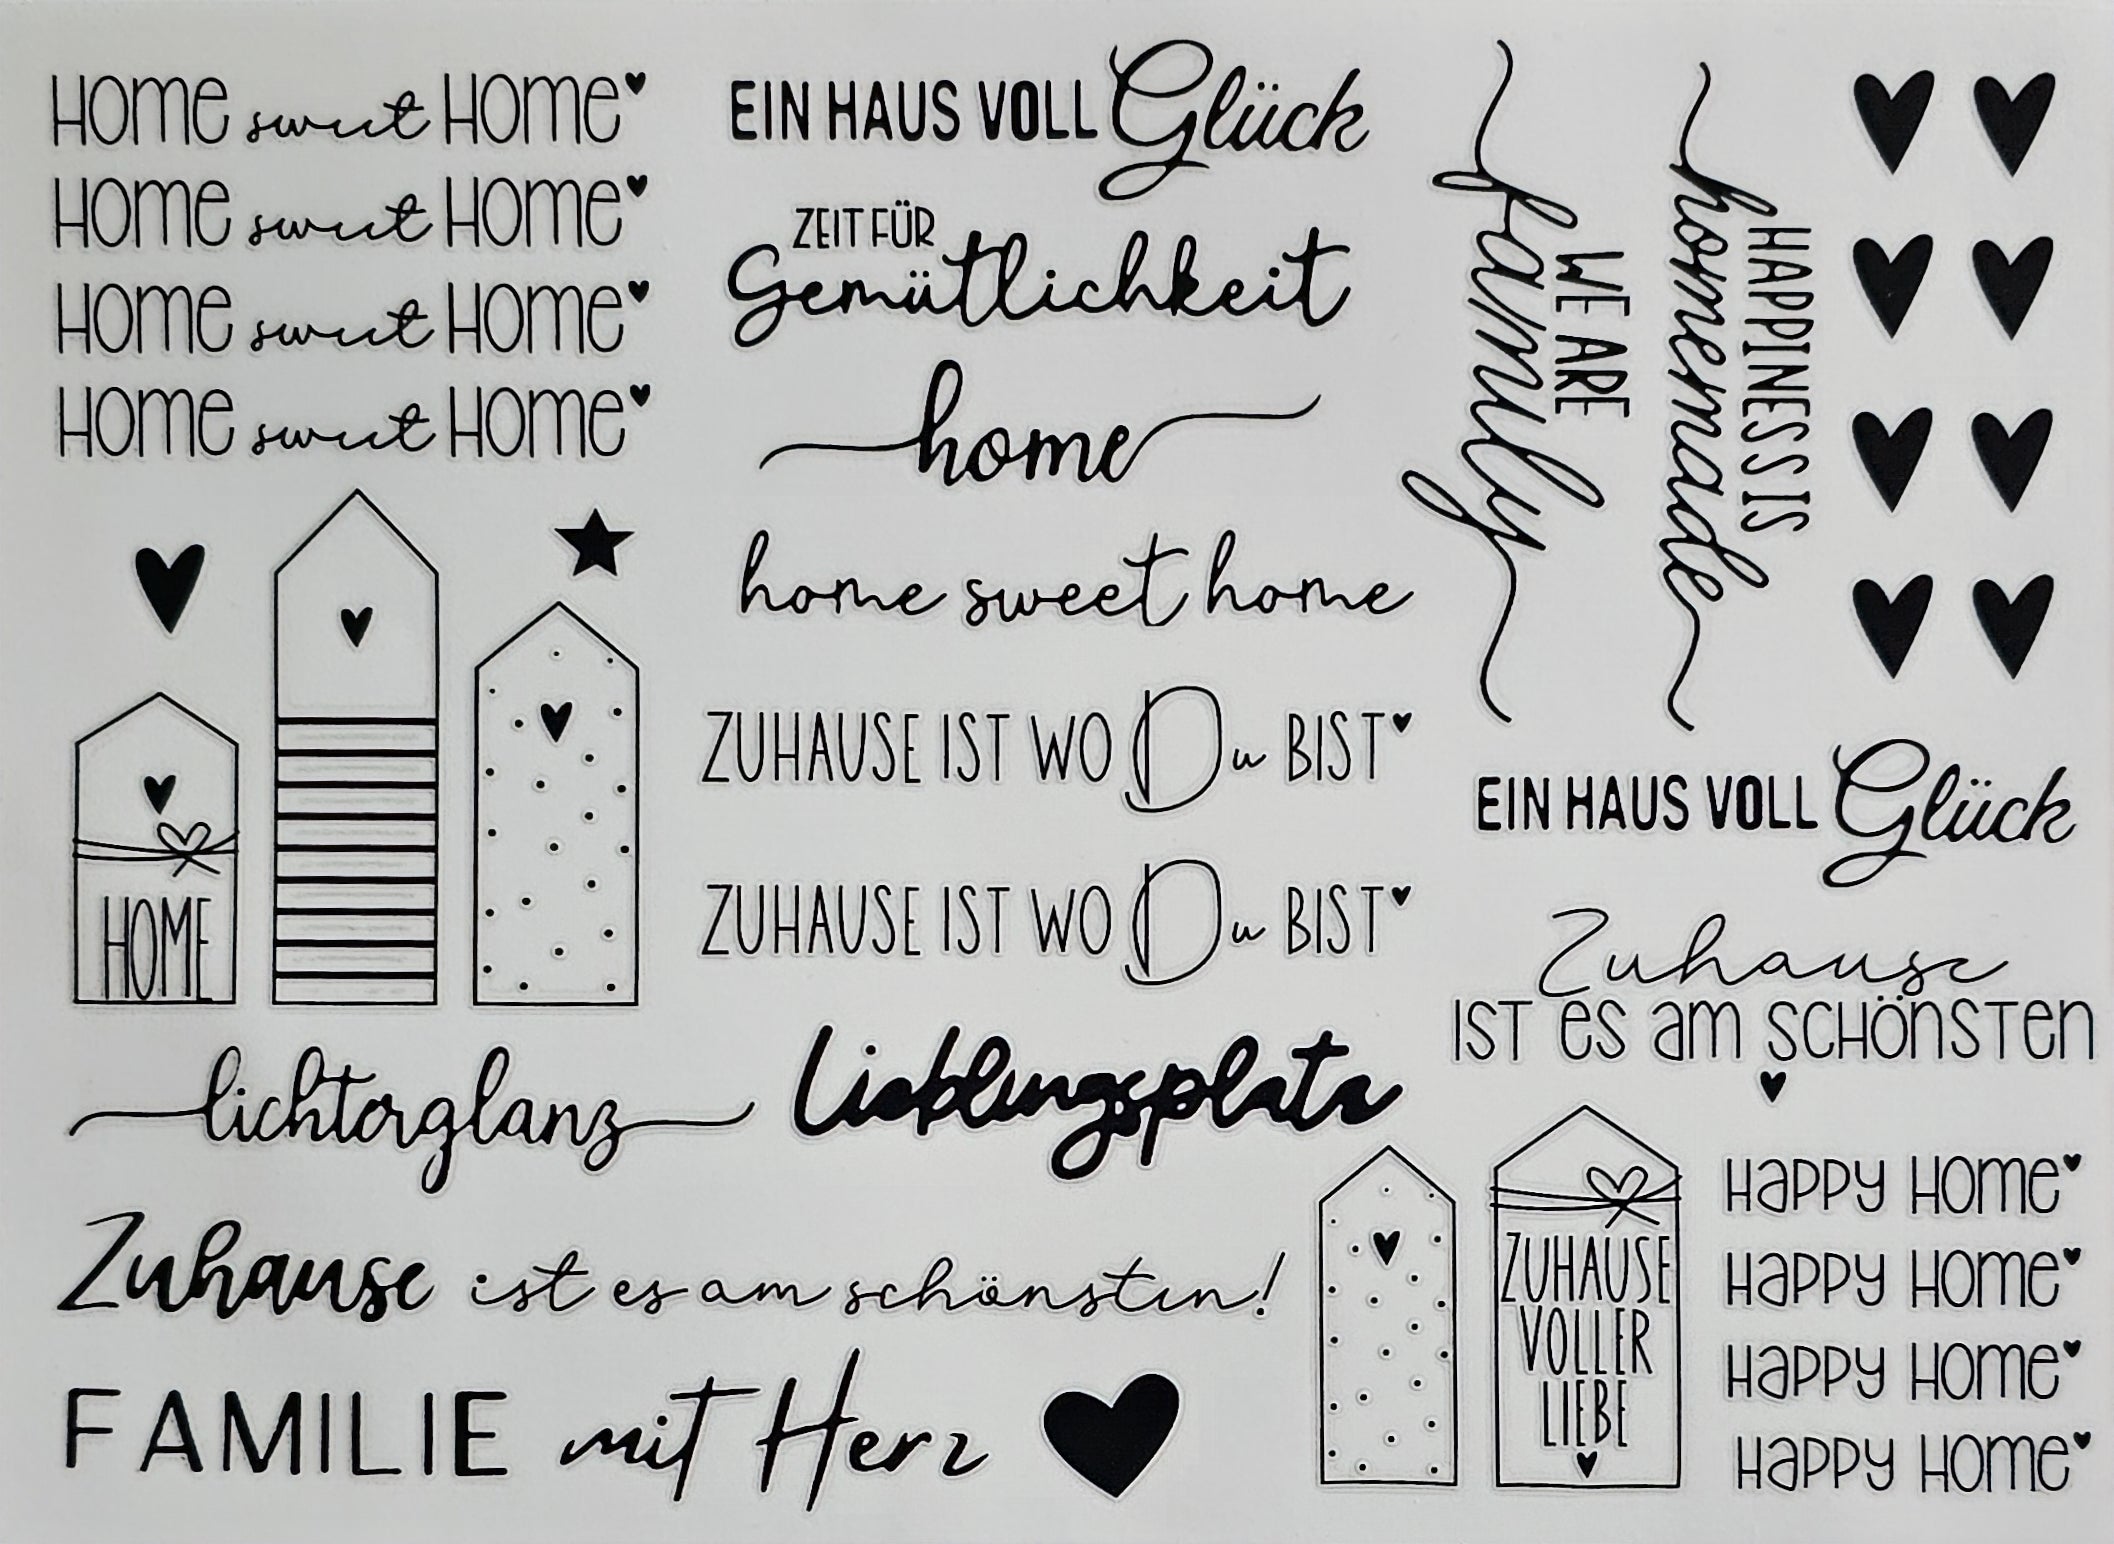 Home sweet Home
Home sweet Home
Home sweet Home
Home sweet Home
HOME
EIN HAUS VOLL Glück
ZEIT FÜR
Gemütlichkeit
home
home sweet home
ZUHAUSE IST WO Du BIST
ZUHAUSE IST WO Du BIST
WE ARE
family
HAPPINESS IS
homemade
EIN HAUS VOLL Glück
Zuhause
IST es am SCHÖNSTEN
lichterglanz
Lieblingsplatz
Zuhause ist es am schönsten!
FAMILIE mit Herz
ZUHAUSE
VOLLER
LIEBE
Happy Home
Happy Home
Happy Home
Happy Home